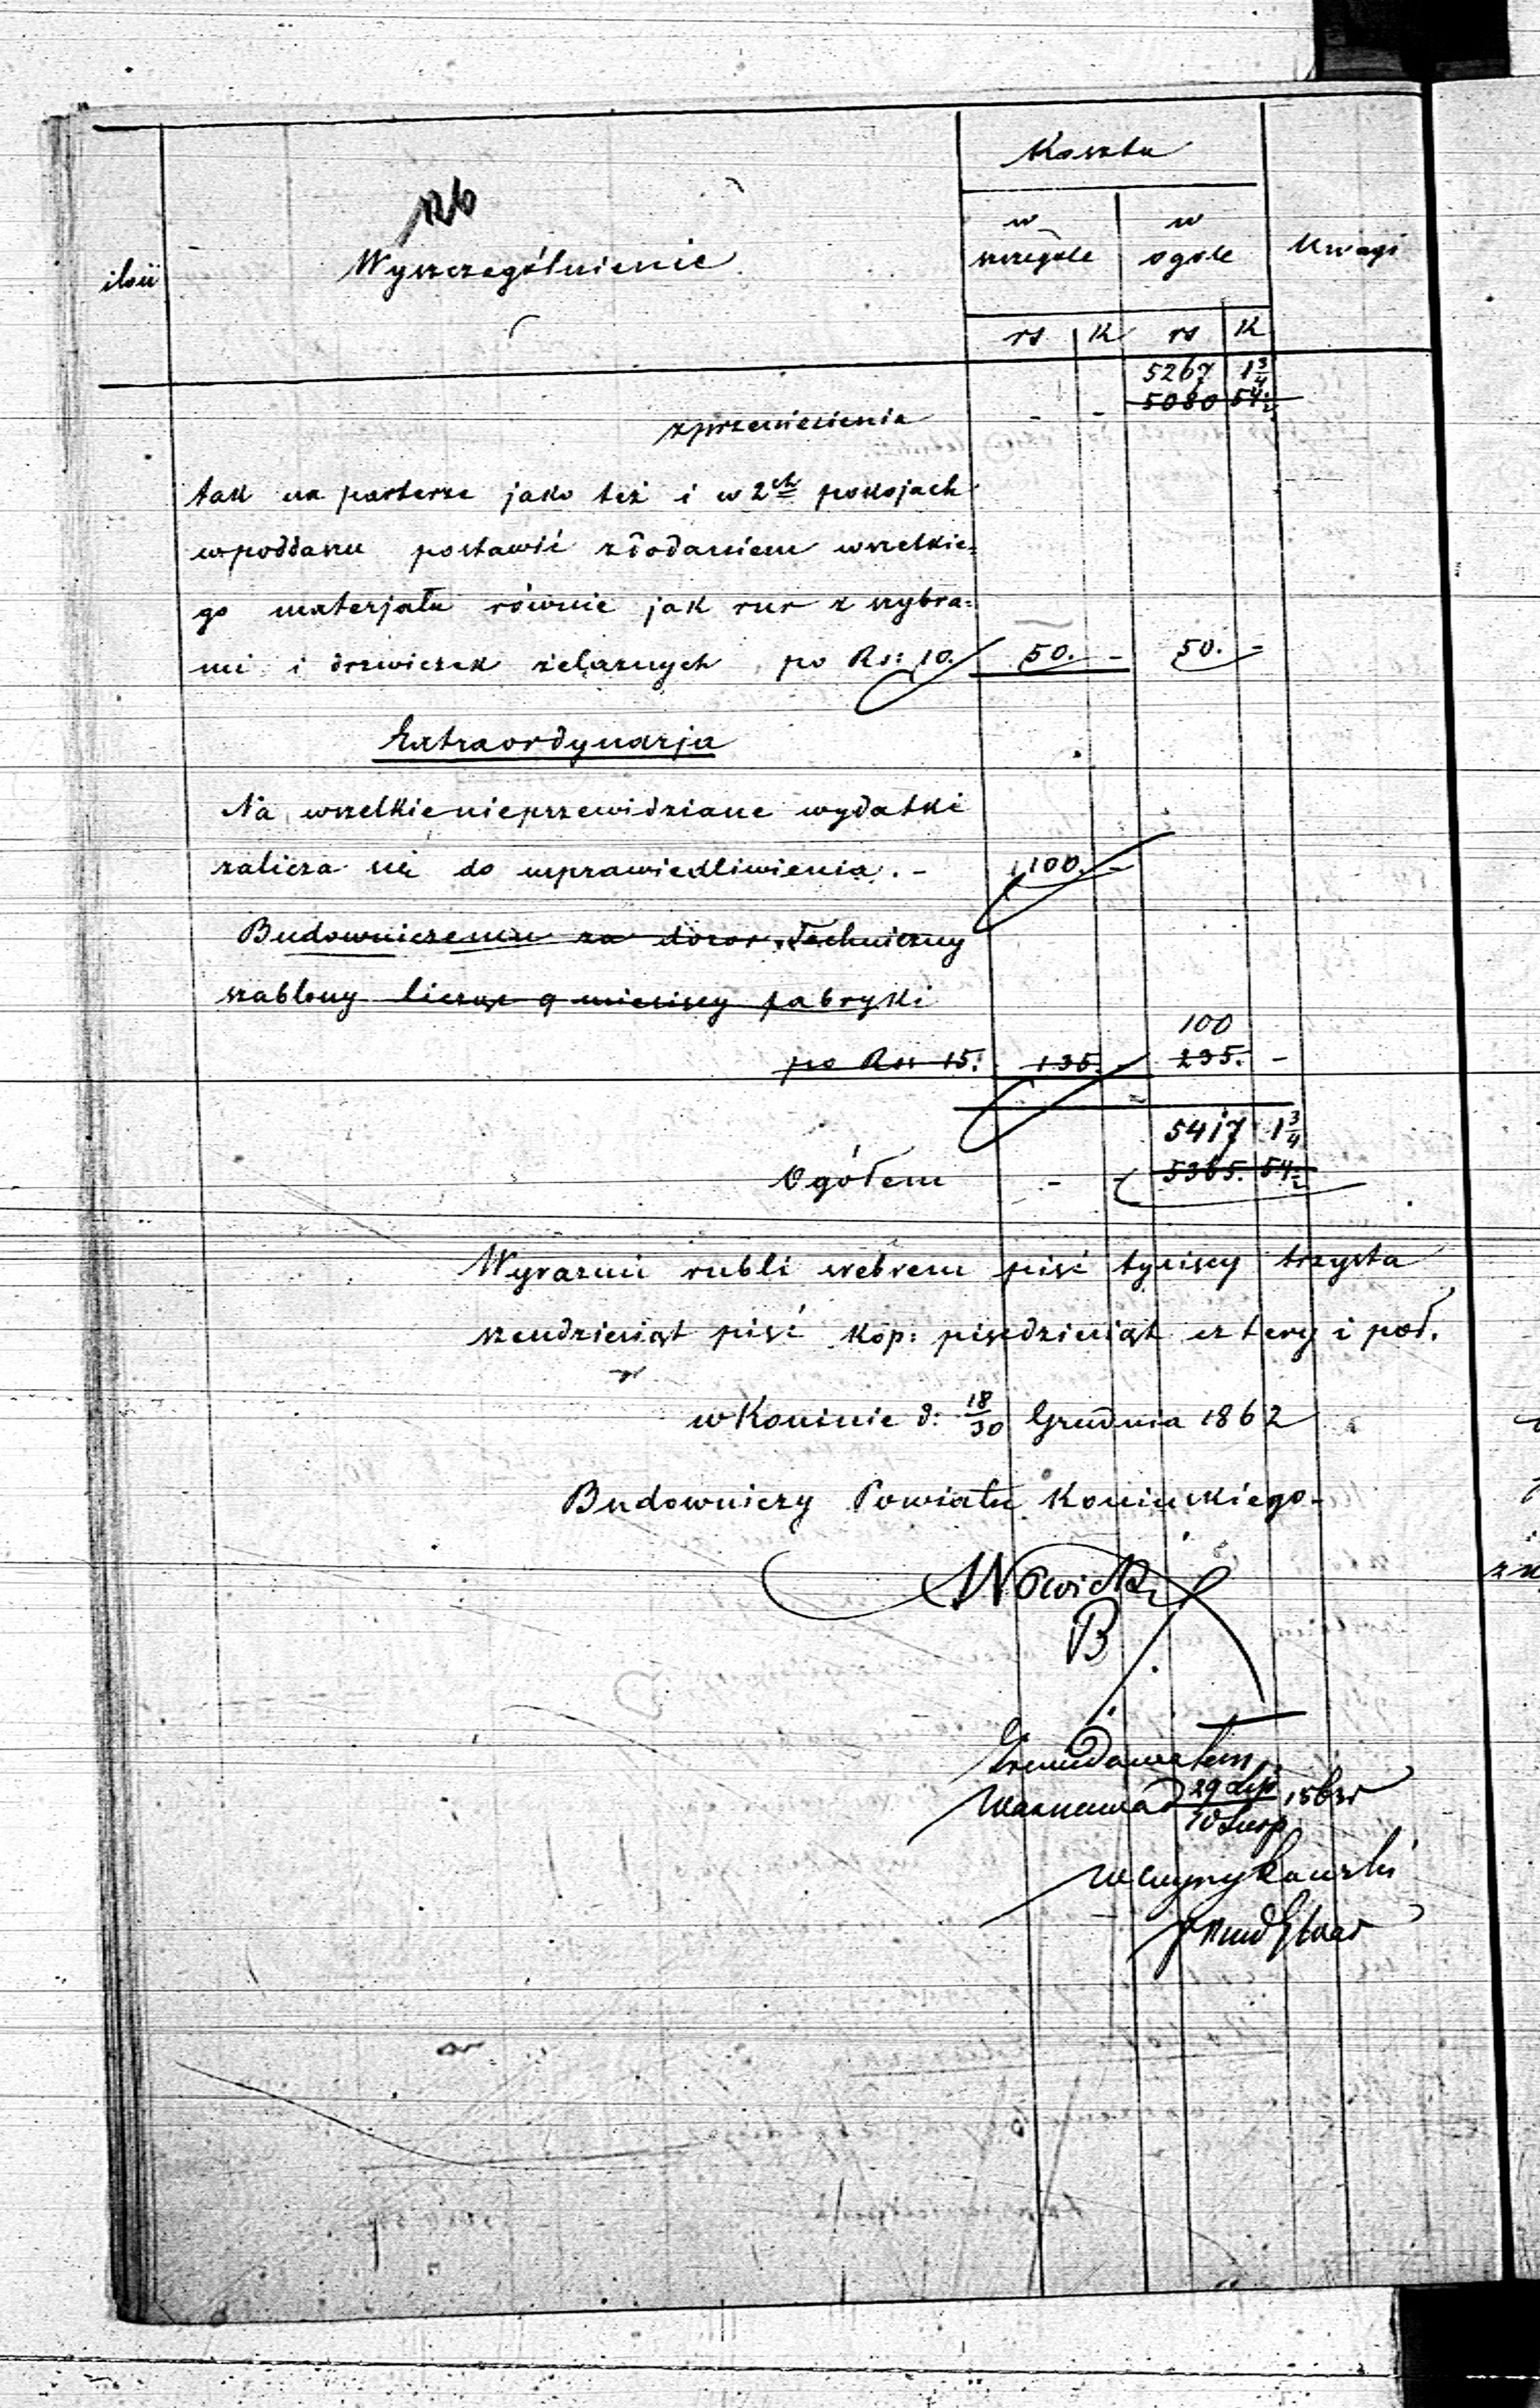 126
Koszta
ilość Wyszczególnienie w szczególe w ogole Uwagi
rs K rs K
5267 1 3/4
z przeniesienia - - 5080 54 1/2
tak na parterze jako też i w 2ch pokojach
w poddaszu postawić z dodaniem wszelkie=
go materjału równie jak rur z szybra=
mi i drzwiczek żelaznych po Rs: 10. 50. - 50. -
Extraordynarja
Na wszelkie nieprzewidziane wydatki
zalicza się do usprawiedliwienia. - 100. -
Budowniczemu za dozor techniczny
szablony licząc 9 miesięcy fabryki
100
po Rs: 15. 135. - 235. -
5417 1 3/4
Ogółem - - 5365. 54 1/2
Wyraznie rubli srebrem pięć tysięcy trzysta
szeździesiąt pięć kop: pięćdziesiąt cztery i poł.
w Koninie d: 18/30 Grudnia 1862
Budowniczy Powiatu Konińskiego -
Nowicki
B
Sprawdzałem
Warszawa d 29 Lip/10 Sierp 1863 r